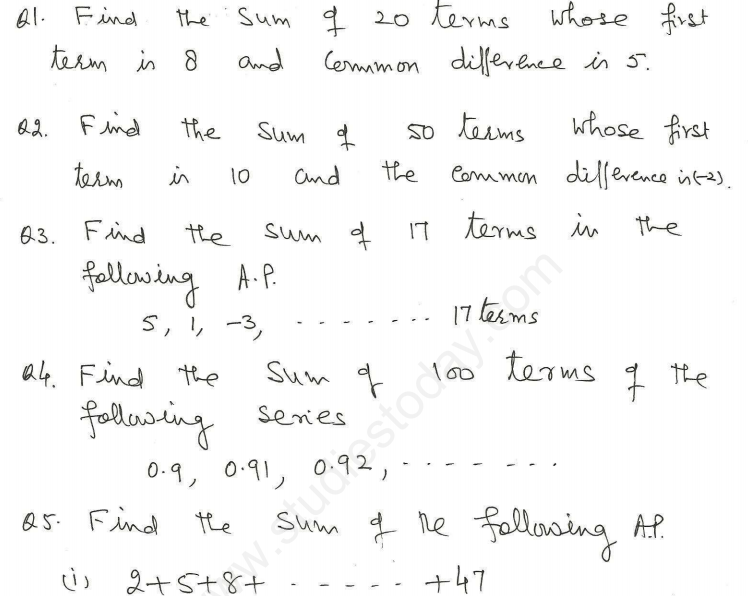 Q1. Find the Sum of 20 terms whose first
term is 8 and Common difference is 5.
Q2. Find the Sum of 50 terms whose first
term is 10 and the common difference is (-2).
Q3. Find the sum of 17 terms in the
following A.P.
5, 1, -3, - - - - - - - - 17 terms
Q4. Find the Sum of 100 terms of the
following series
0.9, 0.91, 0.92, - - - - - - -
Q5. Find the Sum of the following A.P.
(i) 2+5+8+ - - - - - - +47
www.studiestoday.com